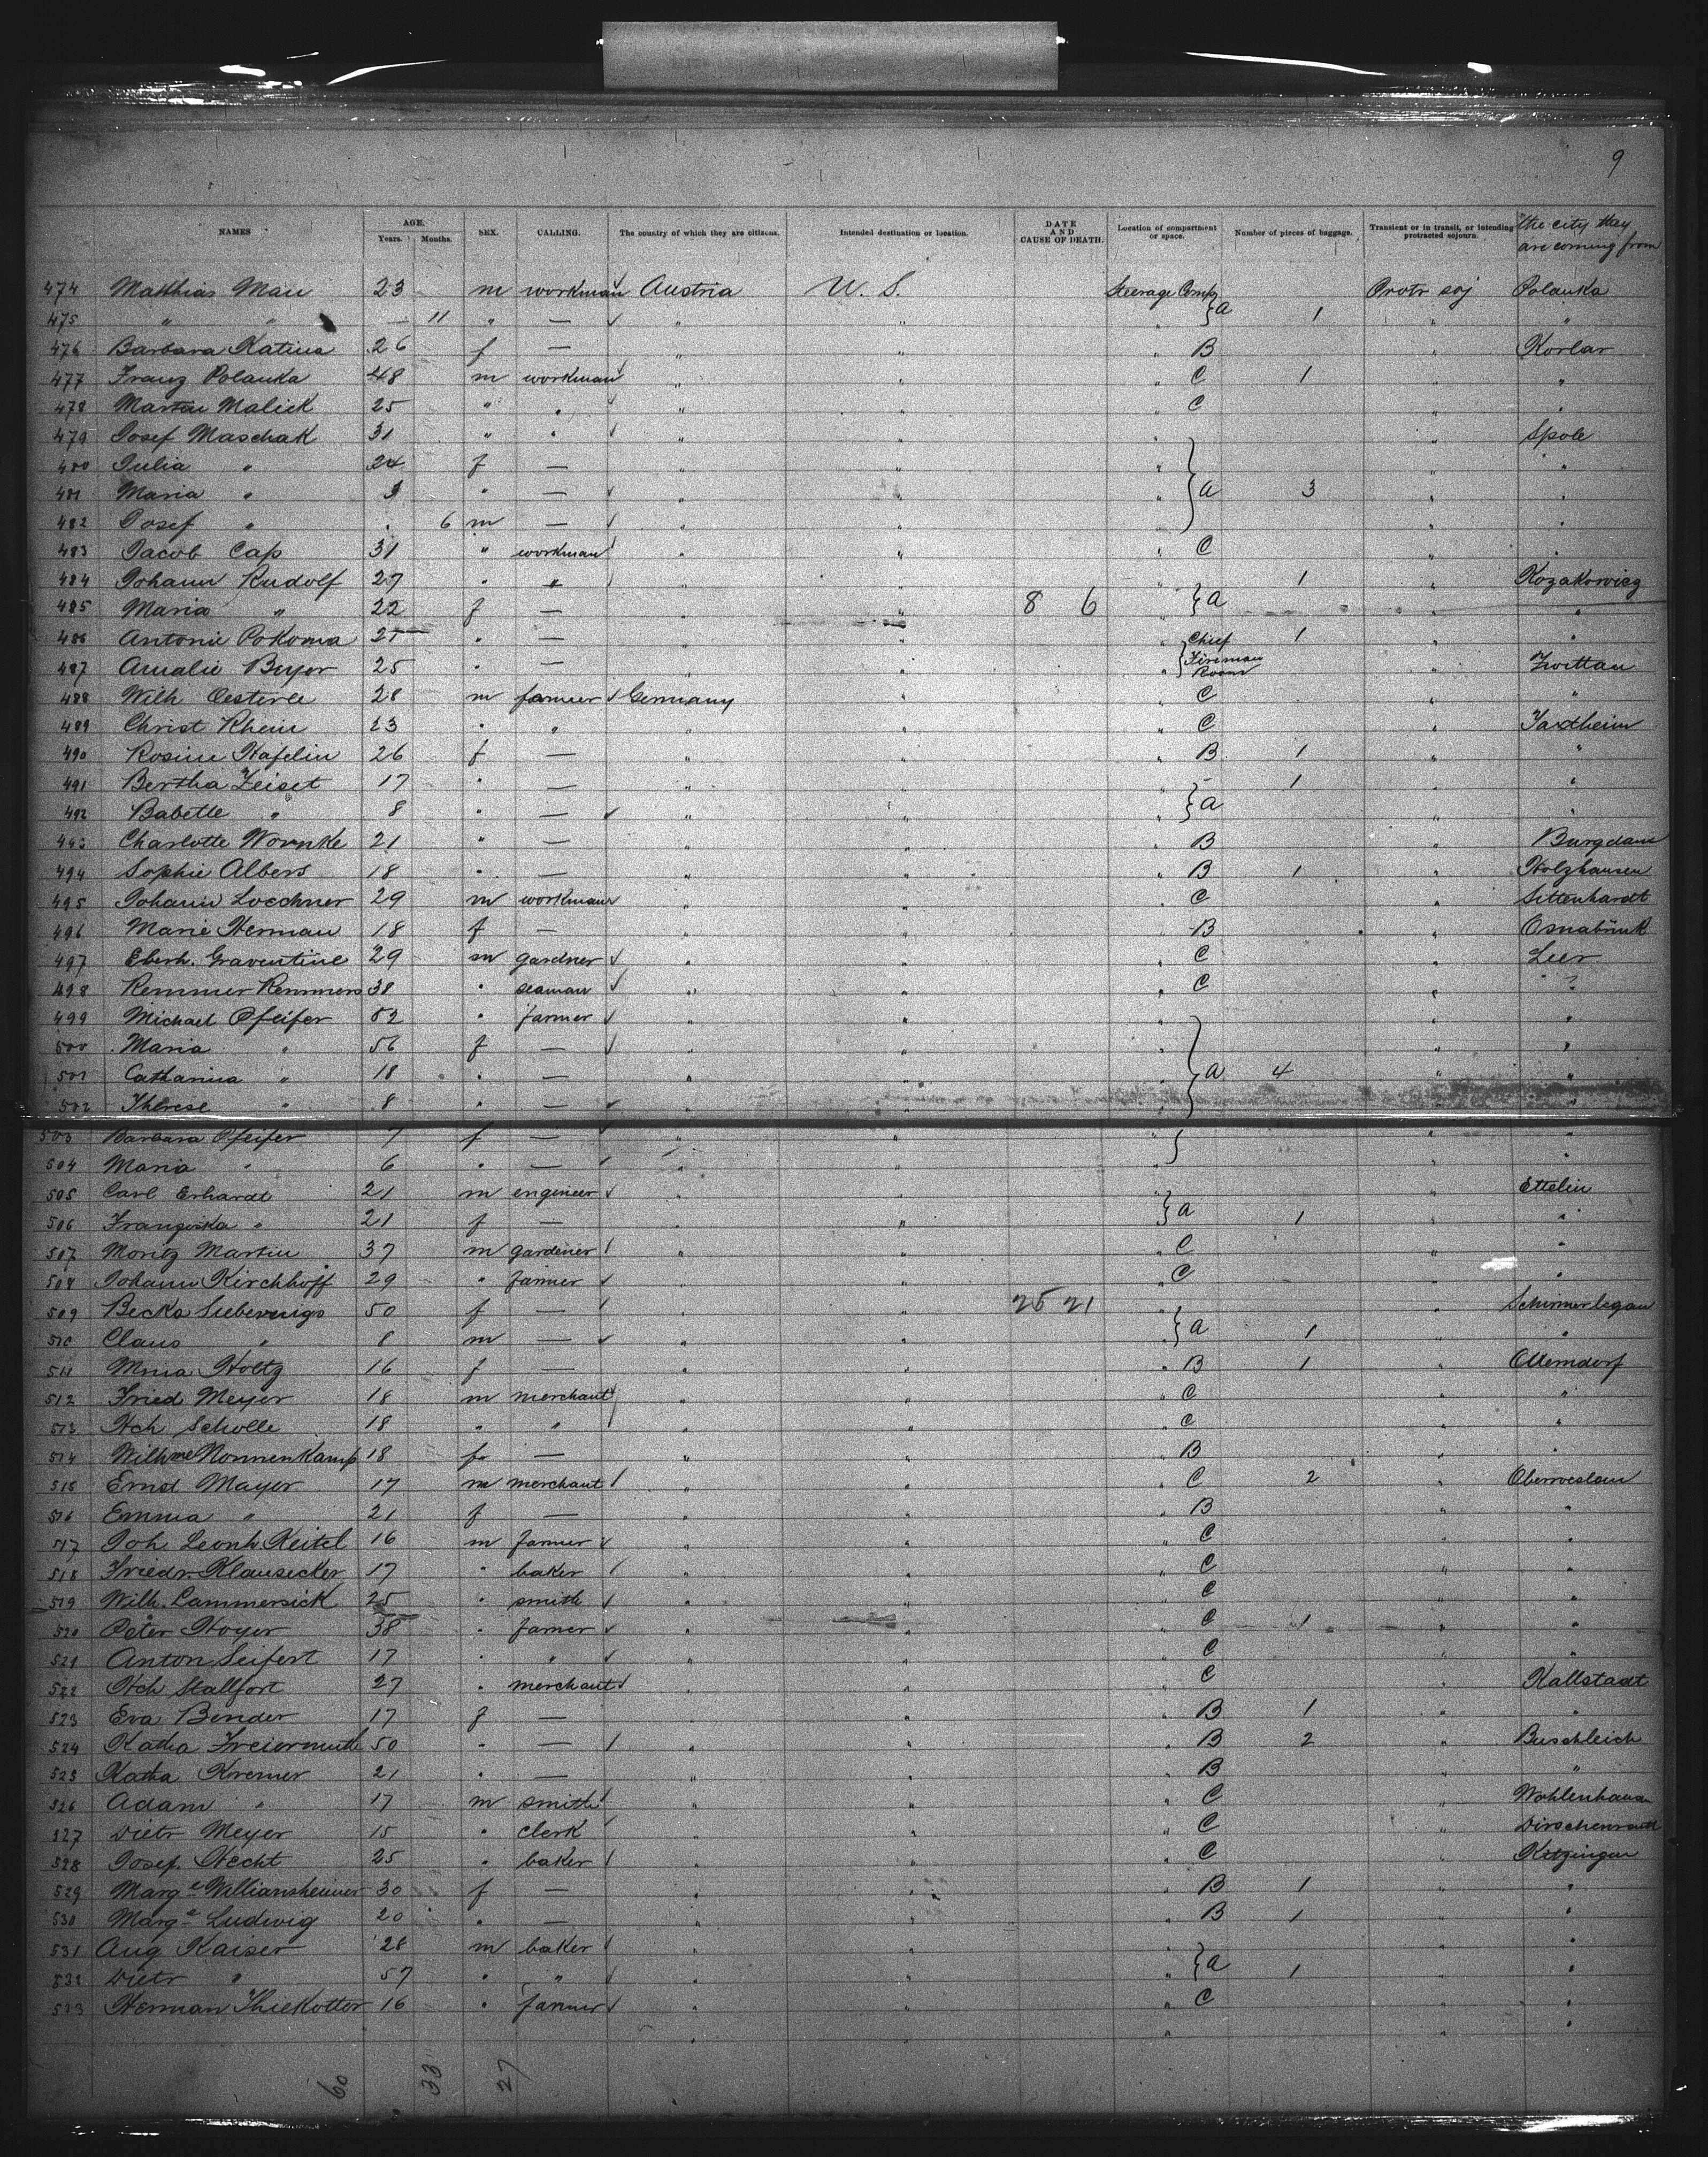 9
NAMES AGE. Years. Months. SEX. CALLING. The country of which they are citizens. Intended destination or location. DATE AND CAUSE OF DEATH. Location of compartment or space. Number of pieces of baggage. Transient or in transit, or intending protracted sojourn. the city they are coming from
474 Matthias Mau 23 m workman Austria U. S. Steerage Comp Protr soj Polauka
475 " " — 11 " — " " " } a 1 " "
476 Barbara Katina 26 f — " " " B " Korlar
477 Franz Polauka 48 m workman " " " C 1 " "
478 Martin Malick 25 " " " " " C " "
479 Josef Maschak 31 " " " " " " Spole
480 Julia " 24 f — " " " " "
481 Maria " 3 " — " " " } a 3 " "
482 Josef " . 6 m — " " " " "
483 Jacob Cap 31 " workman " " " C " "
484 Johann Rudolf 27 " " " " " 1 " Kozakowicz
485 Maria " 22 f — " " 8 6 " } a " "
486 Antonie Pokorna 25 " — " " " Chief 1 " "
487 Amalie Beyer 25 " — " " " Fireman Room " Zwittau
488 Wilh Oesterle 28 m farmer Germany " " C " "
489 Christ Rhein 23 " " " " " C " Jaxtheim
490 Rosine Hafelin 26 f — " " " B 1 " "
491 Bertha Zeiset 17 " — " " " 1 " "
492 Babette " 8 " — " " " } a " "
493 Charlotte Wornke 21 " — " " " B " Burgdam
494 Sophie Albers 18 " — " " " B 1 " Holzhausen
495 Johann Loechner 29 m workman " " " C " Sittenhardt
496 Marie Herman 18 f — " " " B " Osnabrück
497 Eberh. Graventine 29 m gardner " " " C " Leer
498 Remmer Remmers 38 " seaman " " " C " " ?
499 Michael Pfeifer 52 " farmer " " " " "
500 Maria " 56 f — " " " " "
501 Catharina " 18 " — " " " } a 4 " "
502 Therese " 8 " — " " " " "
503 Barbara Pfeifer 7 f — " " " } " "
504 Maria " 6 " — " " " " "
505 Carl Erhardt 21 m engineer " " " " Ettelin
506 Franziska " 21 f — " " " } a 1 " "
507 Moritz Martin 37 m gardener " " " C " "
508 Johann Kirchhoff 29 " farmer " " " C " "
509 Becka Sieberings 50 f — " " 25 21 " "
510 Claus " 8 m — " " " } a 1 " "
511 Mina Holtz 16 f — " " " B 1 " Otterndorf
512 Fried Meyer 18 m merchant " " " C " "
513 Hch Scholle 18 " " " " " C " "
514 Wilhme Nonnenkamp 18 f — " " " B " "
515 Ernst Mayer 17 m merchant " " " C 2 " Oberroeslau
516 Emma " 21 f — " " " B " "
517 Joh Leonh Keitel 16 m farmer " " " C " "
518 Friedr. Klausecker 17 " baker " " " C " "
519 Wilh. Lammersick 25 " smith " " " C " "
520 Peter Hoyer 38 " farmer " " " C 1 " "
521 Anton Seifert 17 " " " " " C " "
522 Hch Stallfort 27 " merchant " " " C " Kallstadt
523 Eva Bender 17 f — " " " B 1 " "
524 Katha Freiermuth 50 " — " " " B 2 " Buschleich
525 Katha Kremer 21 " — " " " B " "
526 Adam " 17 m smith " " " C " Wohlenhausen
527 Dietr Meyer 15 " clerk " " " C "
528 Josef. Hecht 25 " baker " " " C " Kitzingen
529 Marge Williansheimer 30 f — " " " B 1 " "
530 Marge Ludwig 20 " — " " " B 1 " "
531 Aug Kaiser 28 m baker " " " " "
532 Dietr " 57 " " " " " } a 1 " "
533 Herman Thiekotter 16 " farmer " " " C " "
60 33 27